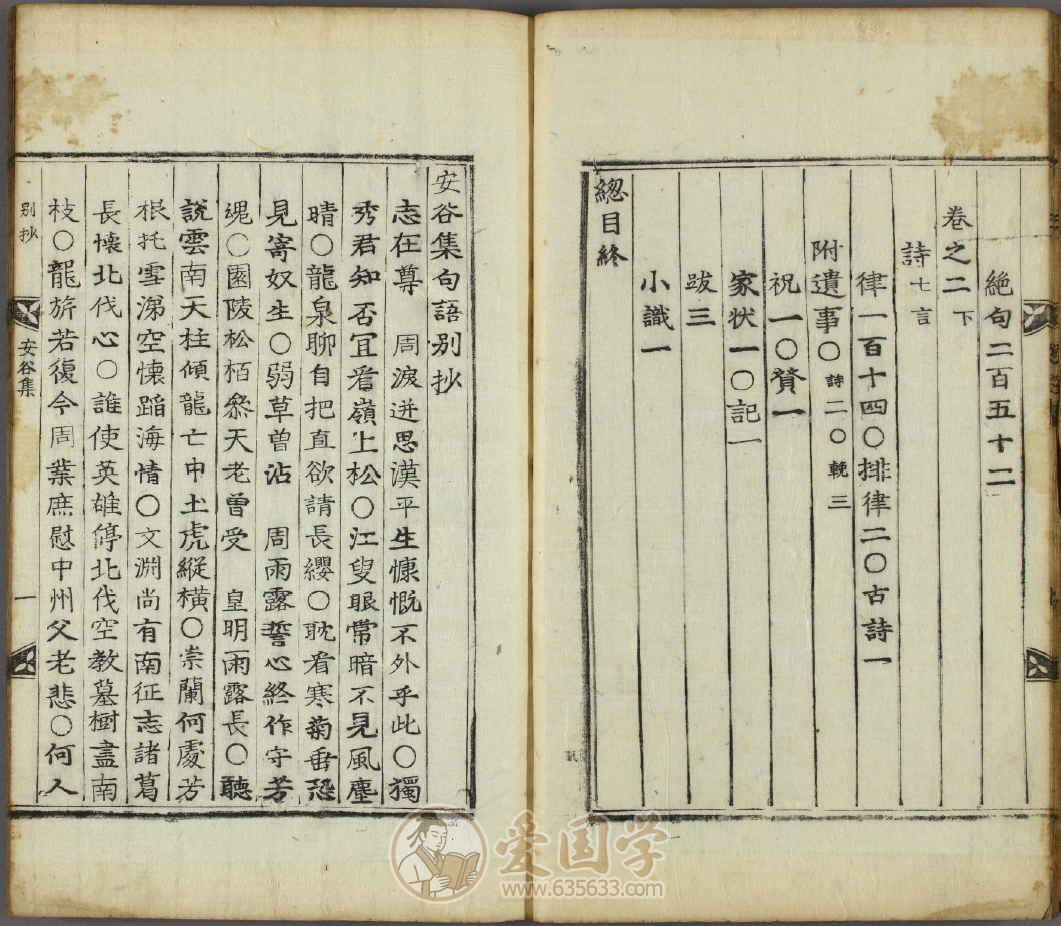 絕句二百五十二
卷之二下
詩七言
律一百十四○排律二○古詩一
附遺事○詩二○輓三
祝一○贊一
家狀一○記一
跋三
小識一
總目終
安谷集句語別抄
志在尊 周淚迸思漢平生慷慨不外乎此○獨
秀君知否冝看嶺上松○江叟眼常暗不見風塵
晴○龍泉聊自把直欲請長纓○耽看寒菊畨恐
見寄奴生○弱草曾沾 周雨露誓心終作守芳
魂○園陵松栢叅天老曾受 皇明雨露長○聽
說雲南天柱傾龍亡中土虎縱橫○崇蘭何處芳
根托雪涕空懷蹈海情○文淵尚有南征志諸葛
長懷北伐心○誰使英雄停北伐空教墓樹盡南
枝○龍旂若復今周業庶慰中州父老悲○何人
別抄
安谷集
一
爱国学
www.635633.com